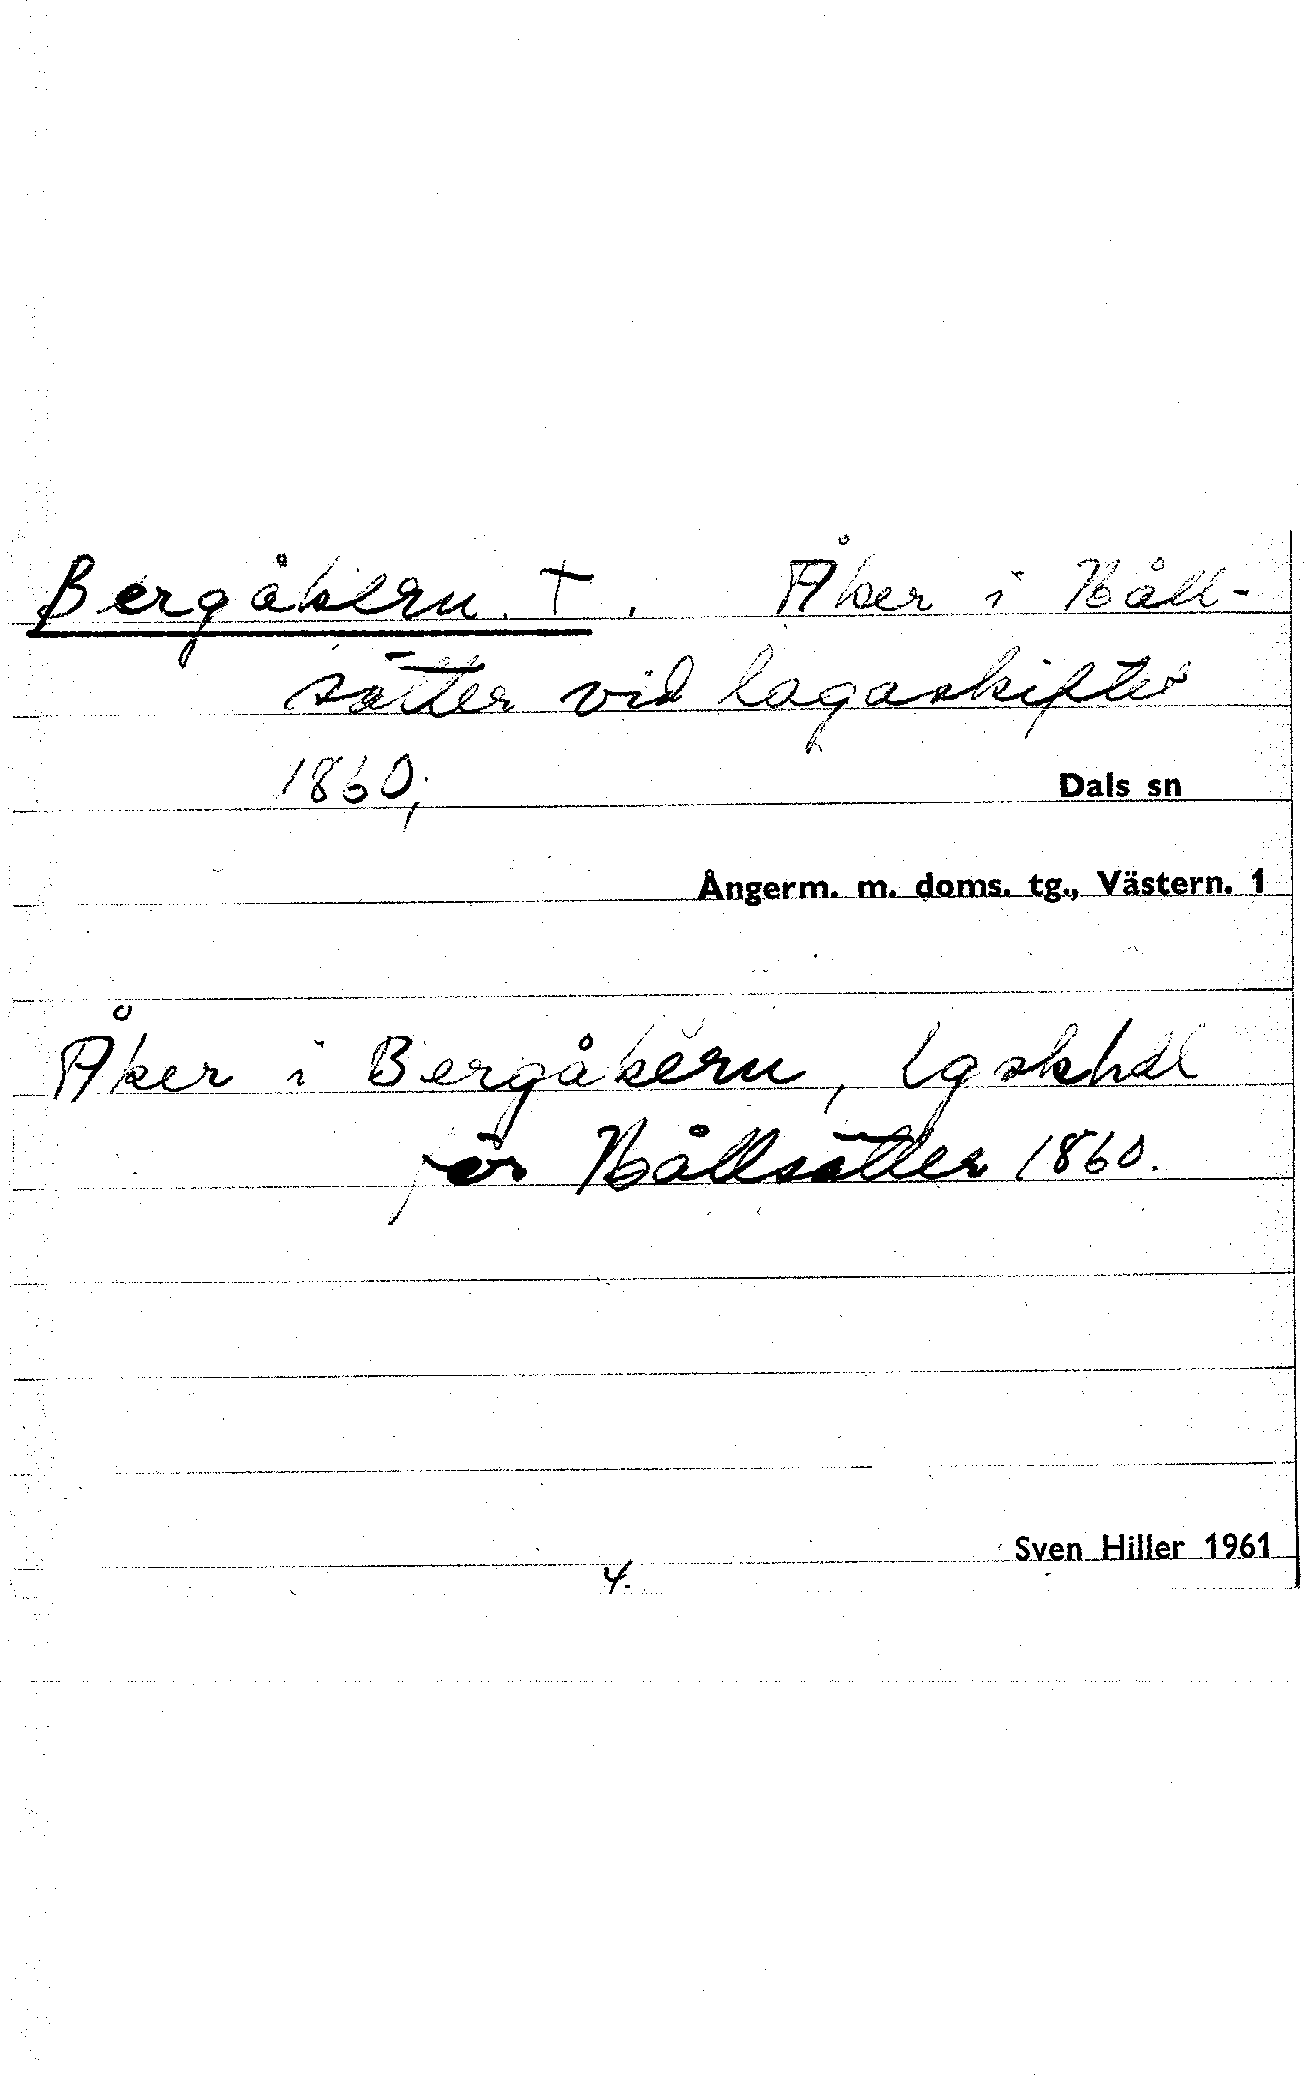 Bergåkern. †. Åker i Håll-
sätter vid lagaskiftet
1860;
Dals sn
Ångerm. m. doms. tg., Västern. 1
Åker i Bergåkern, lgskhdl
för Hållsätter 1860.
Sven Hiller 1961
4.